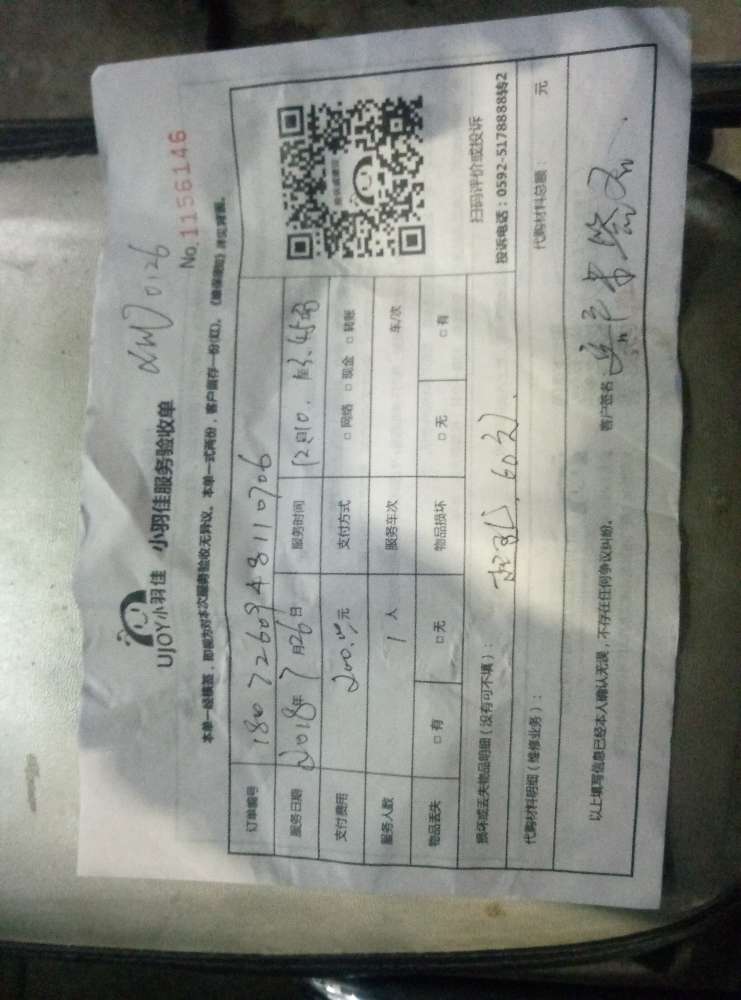 UJOY小羽佳 小羽佳服务验收单 XM70126
No.1156146
本单一经填签，即视为对本次服务验收无异议。本单一式两份，客户留存一份(红)。
订单编号 18072609483110706
服务日期 2018年7月26日 服务时间
支付费用 200.00元 支付方式 □网络 □现金 □转账
服务人数 1人 服务车次 车/次
物品丢失 □有 □无 物品损坏 □无 □有
扫码评价或投诉
投诉电话：0592-5178888转2
损坏或丢失物品明细（没有可不填）：
代购材料明细（维修业务）： 代购材料总额： 元
以上填写信息已经本人确认无误，不存在任何争议纠纷。 客户签名：